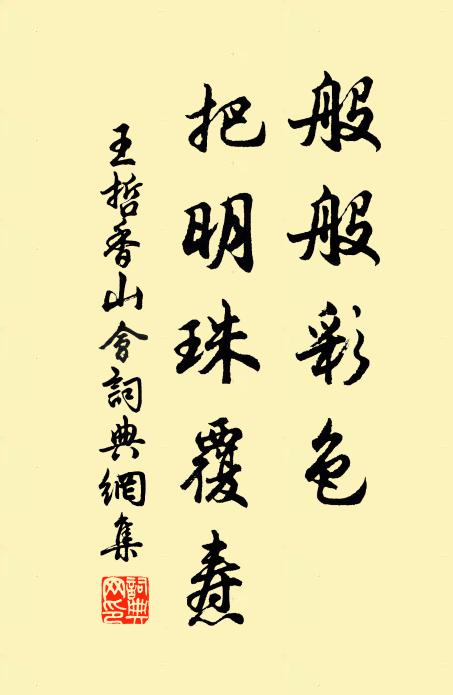 般般彩色
把明珠覆焘
王哲香山會詞典網集
詞典
网印